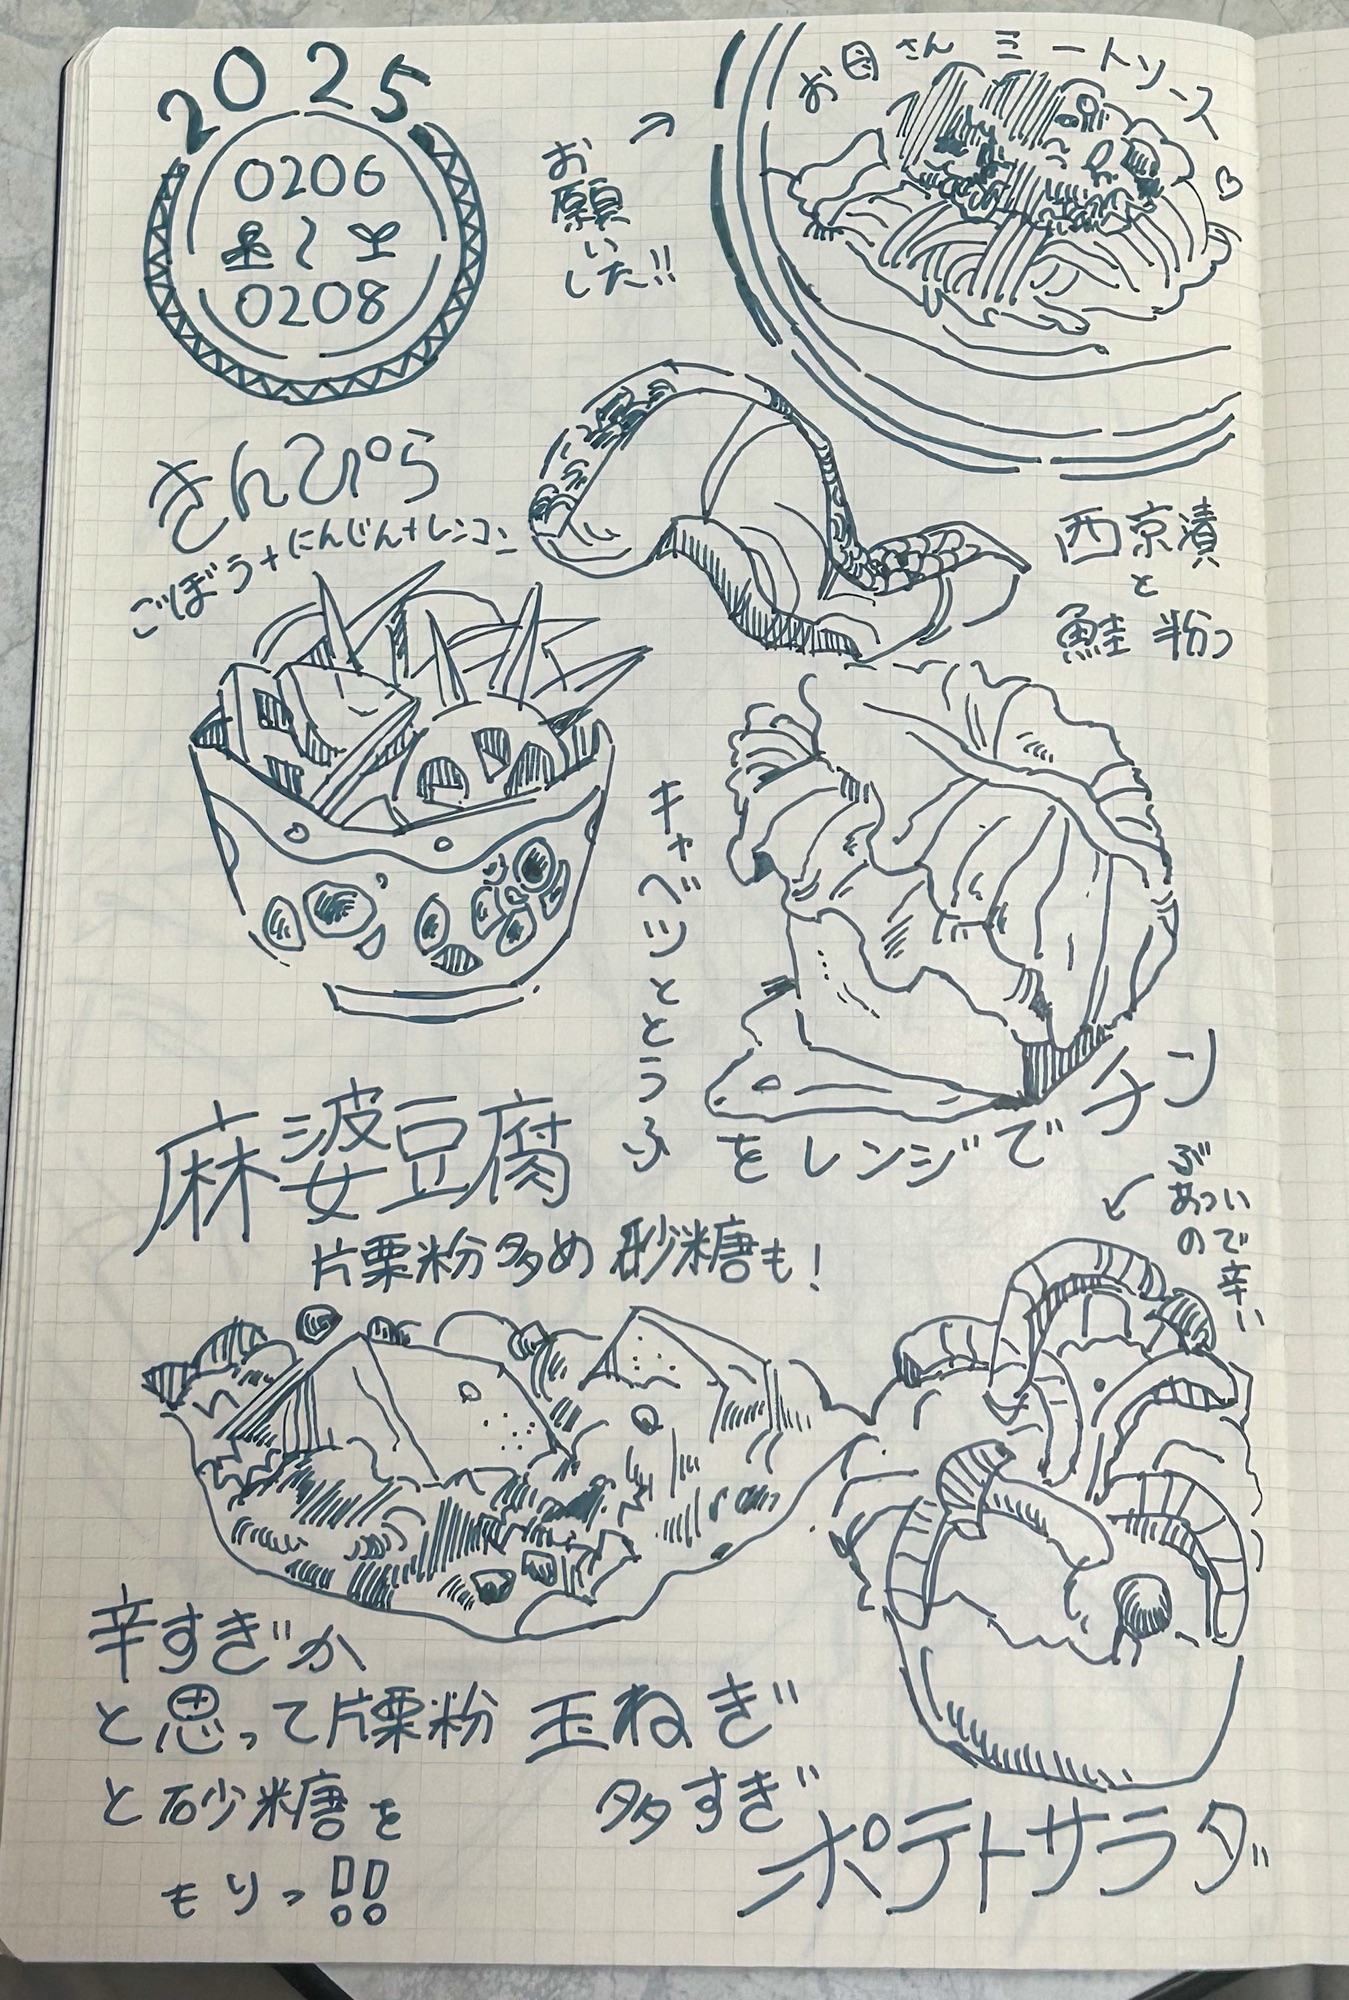 2025.
0206
木〜土
0208
お母さん ミートソース♡
お願い
した!!
きんぴら
ごぼう+にんじん+レンコン
西京漬
と
鮭 粉つ
キャベツととうふ
をレンジでチン
麻婆豆腐
片栗粉多め 砂糖も!
ぶ
あつい
ので
辛い
辛すぎか
と思って片栗粉
と砂糖を
もりっ!!
玉ねぎ
多すぎ
ポテトサラダ